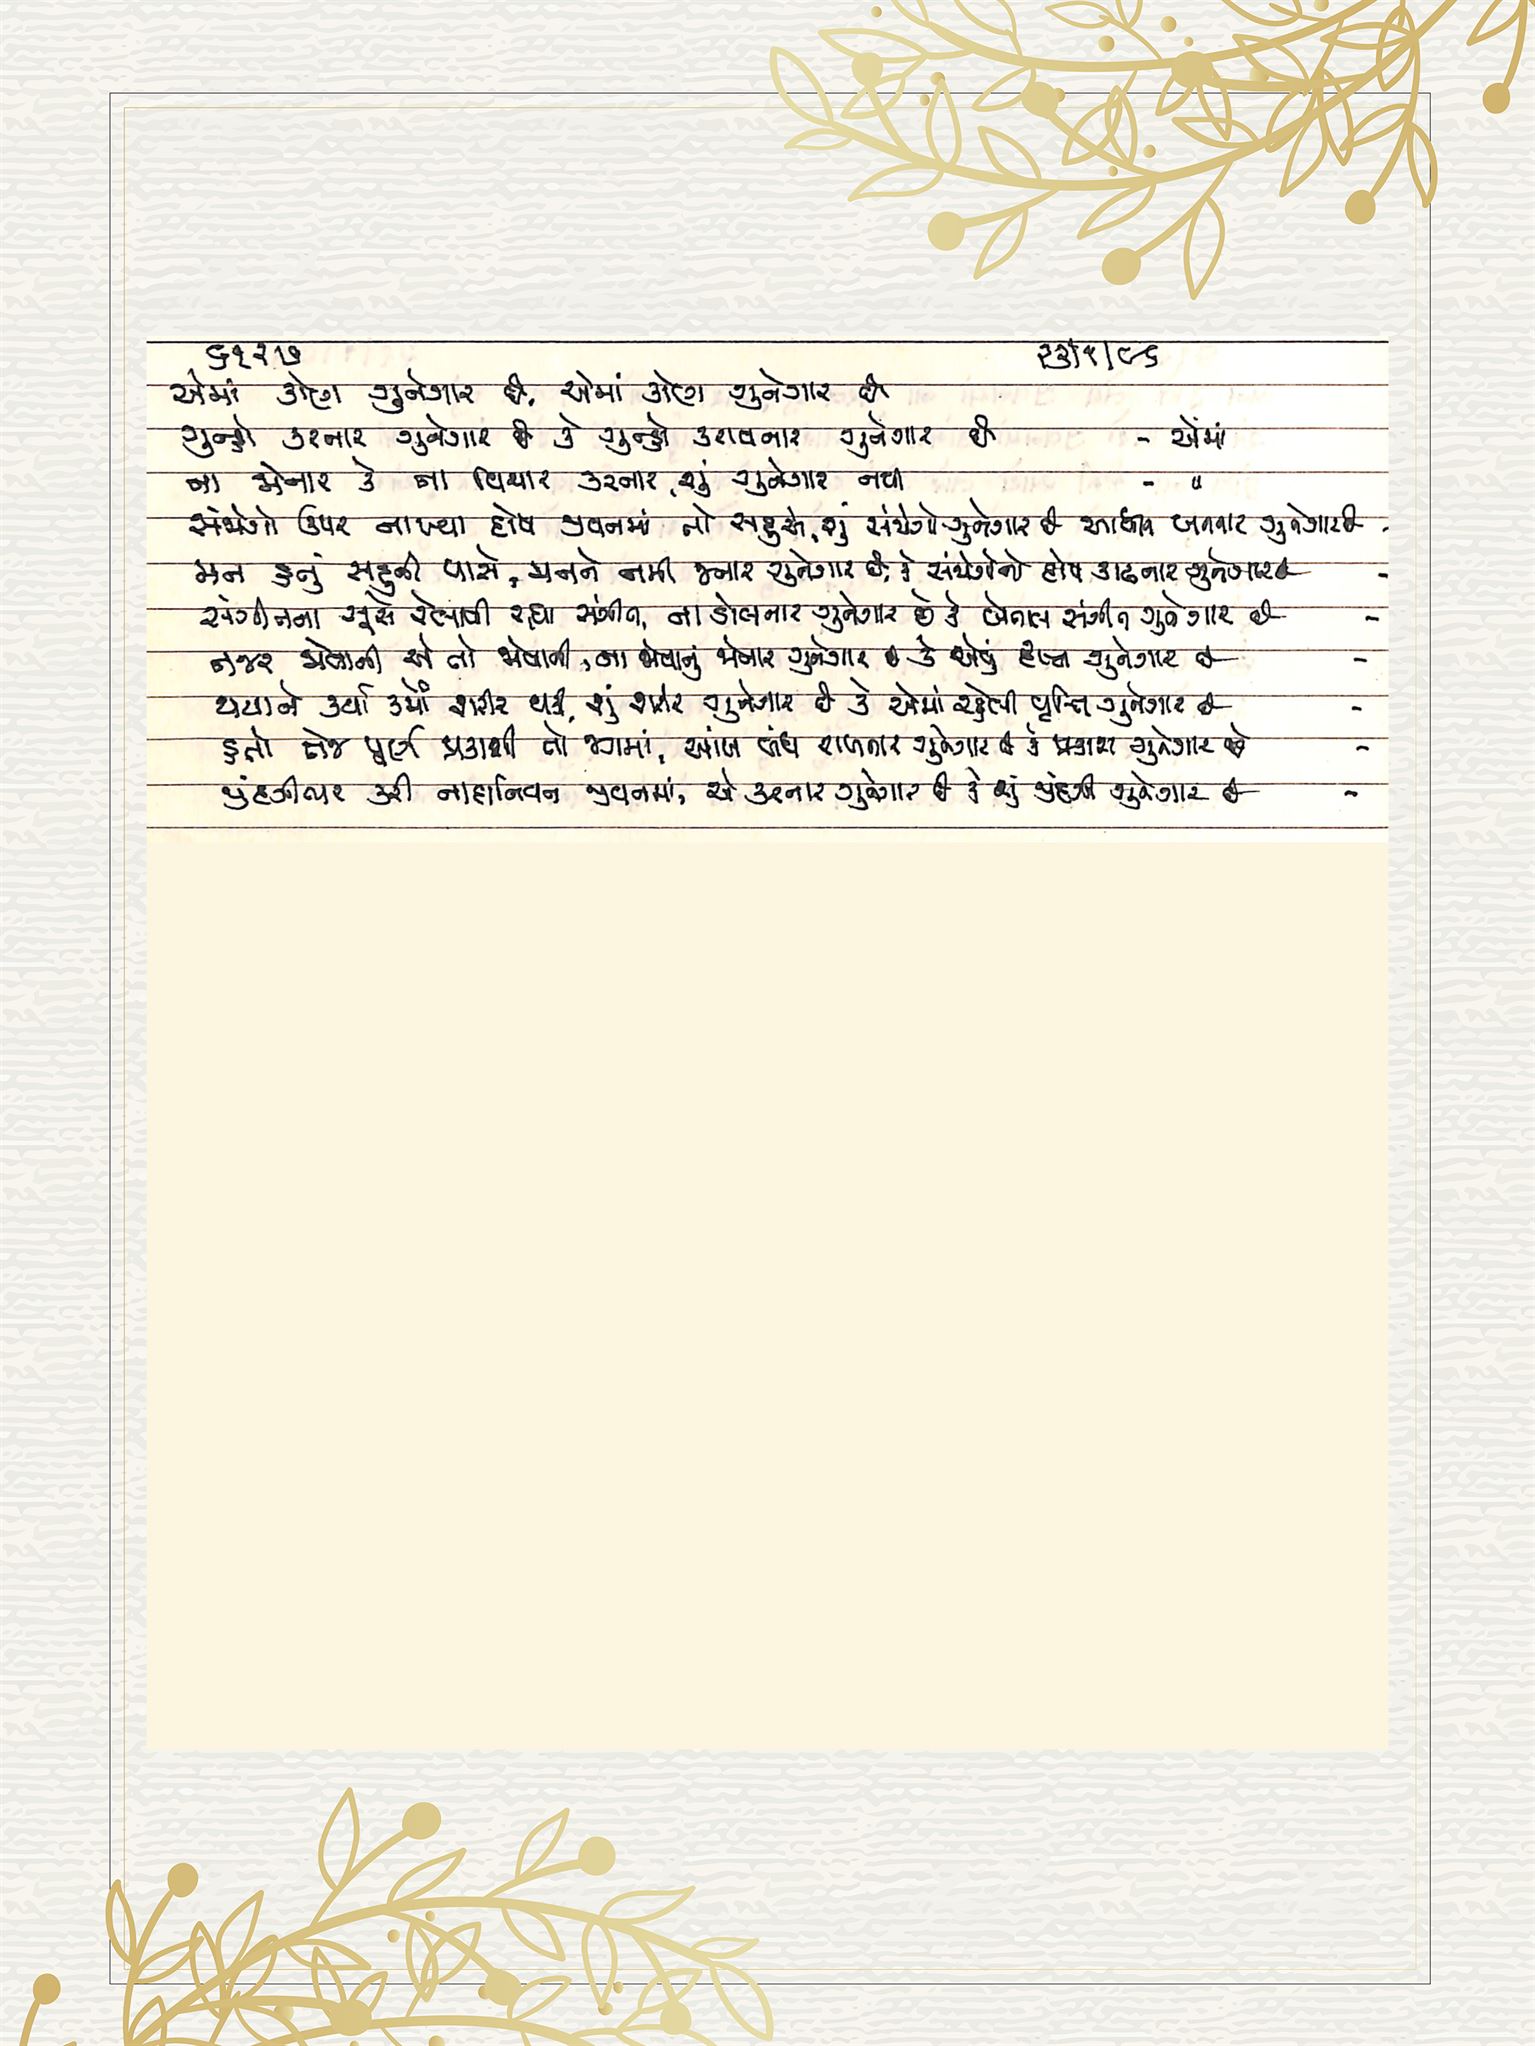 ૬૧૨૭ ૨૩/૧/૯૬
એમાં કોણ ગુનેગાર છે, એમાં કોણ ગુનેગાર છે
ગુન્હો કરનાર ગુનેગાર છે કે ગુન્હો કરાવનાર ગુનેગાર છે - એમાં
ના જોનાર કે ના વિચાર કરનાર, શું ગુનેગાર નથી - "
સંજોગો ઉપર નાખ્યા દોષ જીવનમાં તો સહુએ, શું સંજોગો ગુનેગાર છે કે બનનાર ગુનેગાર છે -
મન હતું સહુની પાસે, મનને નમી જનાર ગુનેગાર છે, કે સંજોગોનો દોષ કાઢનાર ગુનેગાર છે -
સંગીતના સૂરો રેલાવી રહ્યા સંગીત, ના ડોલનાર ગુનેગાર છે કે સંગીત ગુનેગાર છે -
નજર જોવાની એ તો જોવાની, ના જોવાનું જોનાર ગુનેગાર છે કે એવું દૃશ્ય ગુનેગાર છે -
કર્યા કર્મો શરીર થકી, શું શરીર ગુનેગાર છે કે એમાં રહેલી વૃત્તિ ગુનેગાર છે -
હતો તેજ પૂર્ણ પ્રકાશી તો જગમાં, આંખ બંધ રાખનાર ગુનેગાર છે કે પ્રકાશ ગુનેગાર છે -
જીંદગીભર કરી જીવનમાં, એ કરનાર ગુનેગાર છે કે શું જીંદગી ગુનેગાર છે -